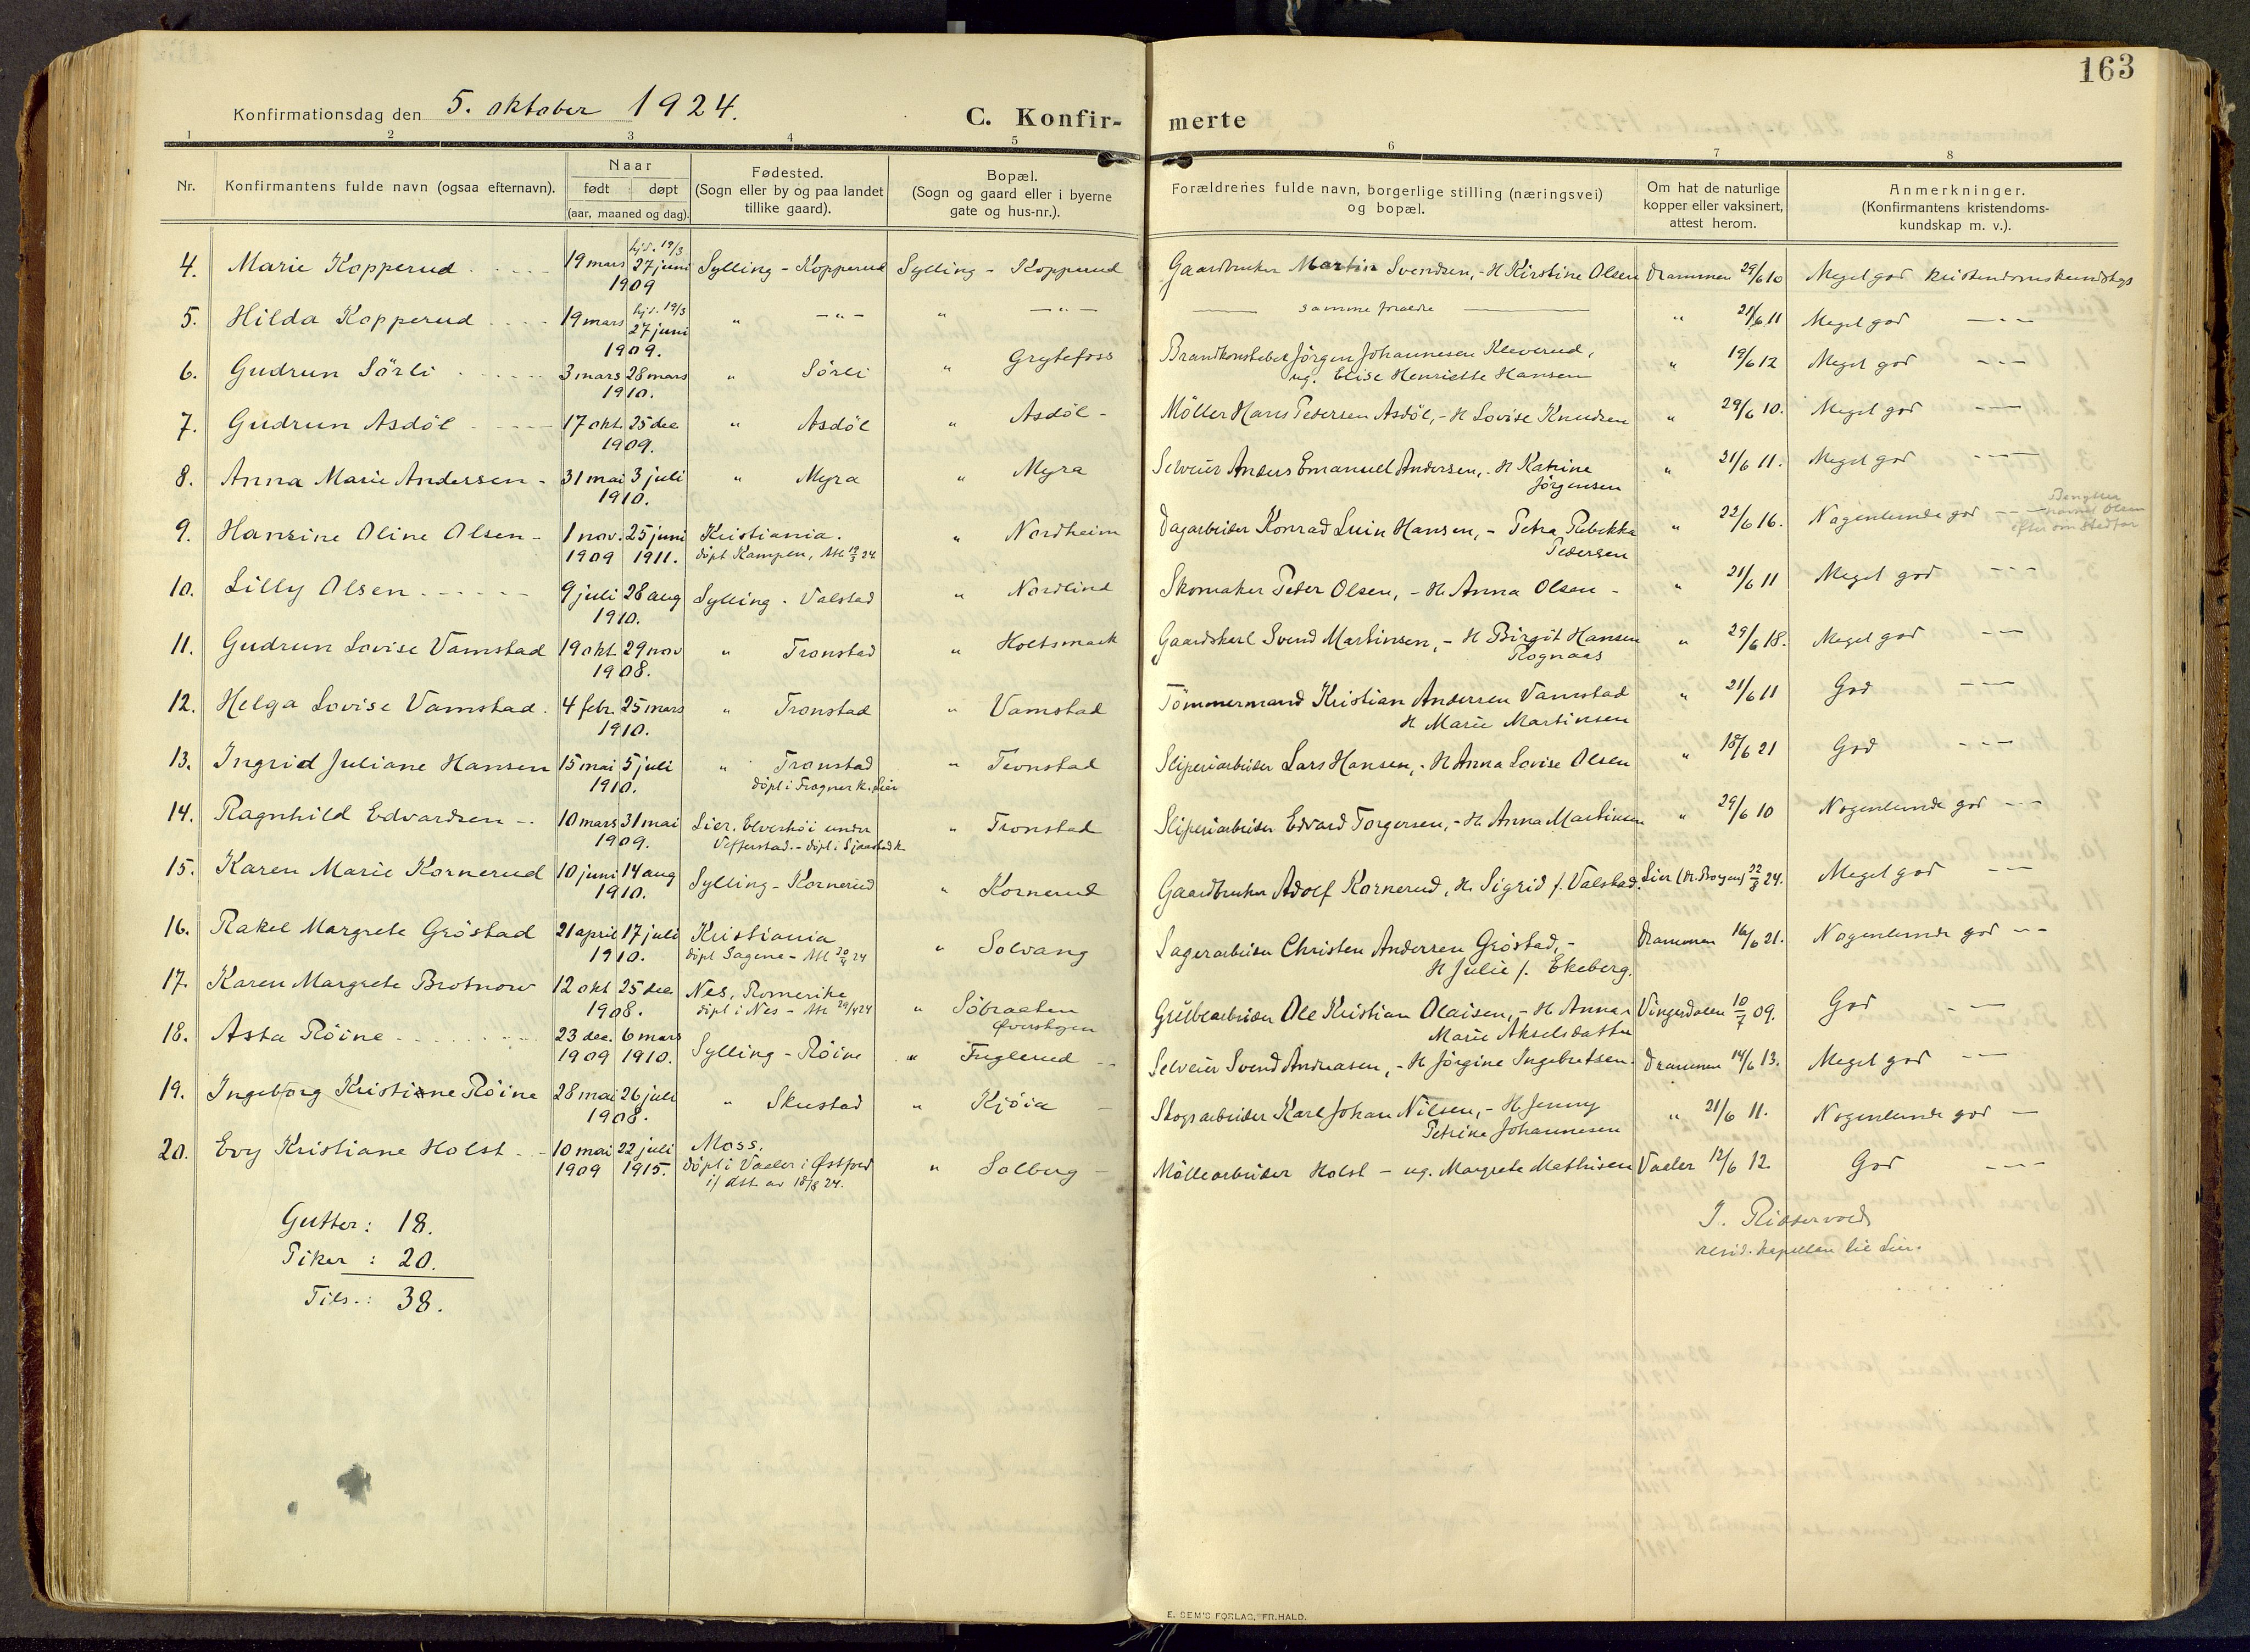 163
Konfirmationsdag den 5. oktober 1924.
C. Konfir- merte
1 2 3 4 5 6 7 8
Nr.
Konfirmantens fulde navn (ogsaa efternavn).
Naar
født døpt
(aar, maaned og dag).
Fødested.
(Sogn eller by og paa landet
tillike gaard).
Bopæl.
(Sogn og gaard eller i byerne
gate og hus-nr.).
Forældrenes fulde navn, borgerlige stilling (næringsvei)
og bopæl.
Om hat de naturlige
kopper eller vaksinert,
attest herom.
Anmerkninger.
(Konfirmantens kristendoms-
kundskap m. v.).
hjd. 19/3
4. Marie Kopperud 19 mars 27 juni Sylling - Kopperud Sylling - Kopperud Gaardbruker Martin Svendsen, - H Kirstine Olsen Drammen 29/6 10 Meget god kristendomskundskap
1909
hjd. 19/3
5. Hilda Kopperud 19 mars 27 juni " - " - " - " - samme foraeldre " 21/6 11 Meget god - - -
1909.
6. Gudrun Sörli 3 mars 28 mars " Sörli " Grytefoss Brandkonstabel Jörgen Johannesen Kleverud, " 19/6 12 Meget god - - -
1910. ug. Elise Henriette Hansen
7. Gudrun Asdöl 17 okt. 25 dec " Asdöl " Asdöl - Möller Hans Pedersen Asdöl, - H Lovise Knudsen " 29/6 10. Meget god - - -
1909.
8. Anna Marie Andersen - 31 mai 3 juli " Myra " Myra Selveier Anders Emanuel Andersen, - H Katrine " 21/6 11. Meget god - - -
1910. Jörgensen
9. Hansine Oline Olsen - 1 nov. 25 juni Kristiania. " Nordheim Dagarbeider Konrad Luin Hansen, - Petra Rebekka " 22/6 16. Nogenlunde god - - Benytter
navnet Olsen
efter sin stedfar
1909 1911. döpt Kampen, Att. 12/5 24 Pedersen
10. Lilly Olsen 9 juli 28 aug Sylling - Valstad " Nordlind Skomaker Peder Olsen, - H. Anna Olsen - " 21/6 11 Meget god - - -
1910.
11. Gudrun Lovise Vamstad 19 okt. 29 nov " Tronstad " Holtsmark Gaardskarl Svend Martinsen, - H Birgit Hansen " 29/6 18. Meget god - -
1908. Rognaas
12. Helga Lovise Vamstad. 4 febr. 25 mars " Tronstad " Vamstad Tömmermand Kristian Andersen Vamstad " 21/6 11 God - - -
1910. H Marie Martinsen
13. Ingrid Juliane Hansen 15 mai 5 juli " Tronstad " Tronstad Sliperiarbeider Lars Hansen, - H Anna Lovise Olsen " 18/6 21 God - - -
1910. döpt i Frogner k. Lier
14. Ragnhild Edvardsen - 10 mars 31 mai Lier. Elverhöi under " Tronstad Sliperiarbeider Edvard Torgersen, - H. Anna Martinsen " 29/6 10 Nogenlunde god - -
1909. Vefferstad. - döpt i Sjaastad k.
15. Karen Marie Kornerud 10 juni 14 aug Sylling - Kornerud " Kornerud Gaardbruker Adolf Kornerud, H. Sigrid f. Valstad. Lier 22/8 24. Meget god - -
1910.
16. Rakel Margrete Gröstad 21 april 17 juli Kristiania " Solvang Lagerarbeider Christen Andersen Gröstad, - Drammen 16/6 21. Nogenlunde god - -
1910. döpt Sagene - Att 30/4 24 H Julie f. Ekeberg.
17. Karen Margrete Brotnow 12 okt 25 dec Nes, Romerike " Söbraaten Ole Kristian Olaisen, - H Anna Vingerdalen 10/7 09. God - -
1908. döpt i Nes - Att 29/4 24 Marie Akselsdatter
18. Asta Röine 23 dec. 6 mars Sylling - Röine " Fuglerud Selveier Svend Andreasen, - H Jörgine Ingebretsen. Drammen 14/6 13. Meget god - -
1909 1910.
19. Ingeborg Kristiane Röine 28 mai 26 juli " Skustad " Kjöia - Skogsarbeider Karl Johan Nilsen, - H Jenny " 21/6 11. Nogenlunde god -
1908. Petrine Johannesen
20. Evy Kristiane Holst - 10 mai 22 juli Moss. " Solberg - Möllearbeider Holst - ug. Margrete Mathisen Vaaler 12/6 12. God - - -
1909 1915. döpt i Vaaler i Østfold
if att av 18/8 24.
Gutter: 18.
Piker: 20.
Tils.: 38.
J. Riddervold
resid. kapellan til Lier.
E. SEM'S FORLAG, FR.HALD.